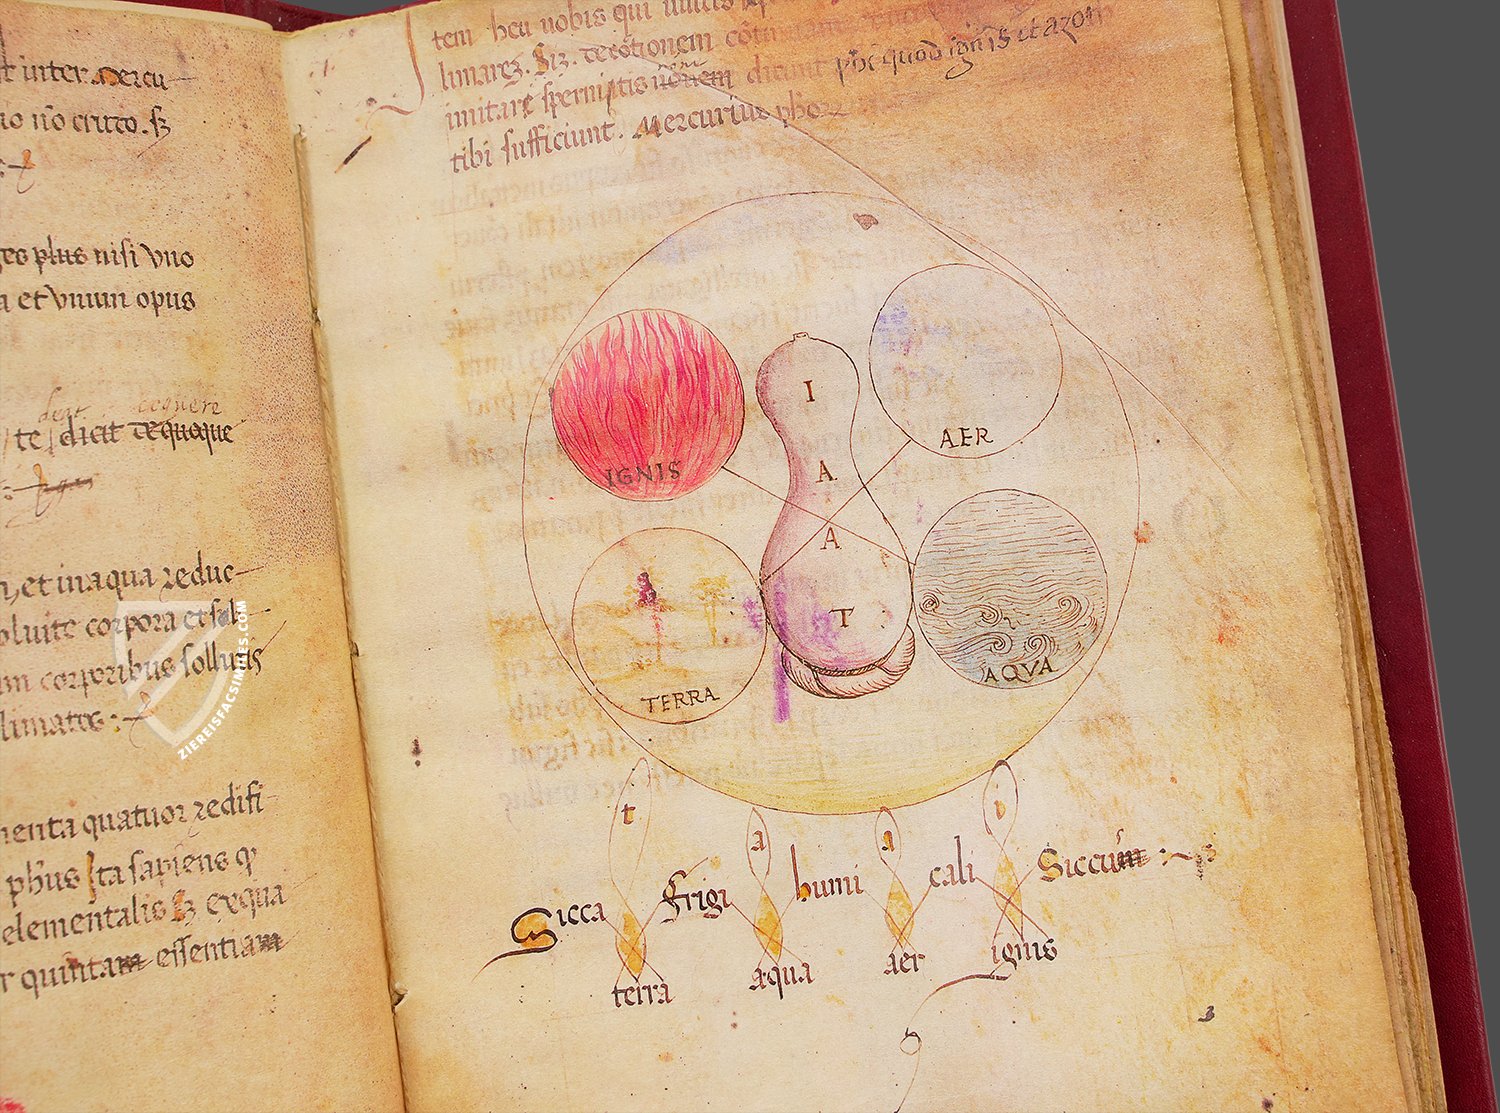 t inter mercu
no nō cruto. sꝫ
ges plus nisi vno
a et vnum opus
dicit coquere
te dicit te quoque
n, et in aqua reduc
oluite corpora et sol
um corporibus sollutis
limates :
menta quatuor redifi
phus Ita sapiens
elementalis sꝫ ex qua
r quintam essentiam
Item heu uobis qui
lunareꝫ. Sꝫ. decōtionem
imitare spermatis dicunt phi quod ignis et azoth
tibi sufficiunt. Mercurius pho
IGNIS
AER
TERRA
AQVA
I
A
A
T
t a a i
Sicca frigi humi cali Siccum
terra aqua aer ignis
ZIEREISFACSIMILES.COM